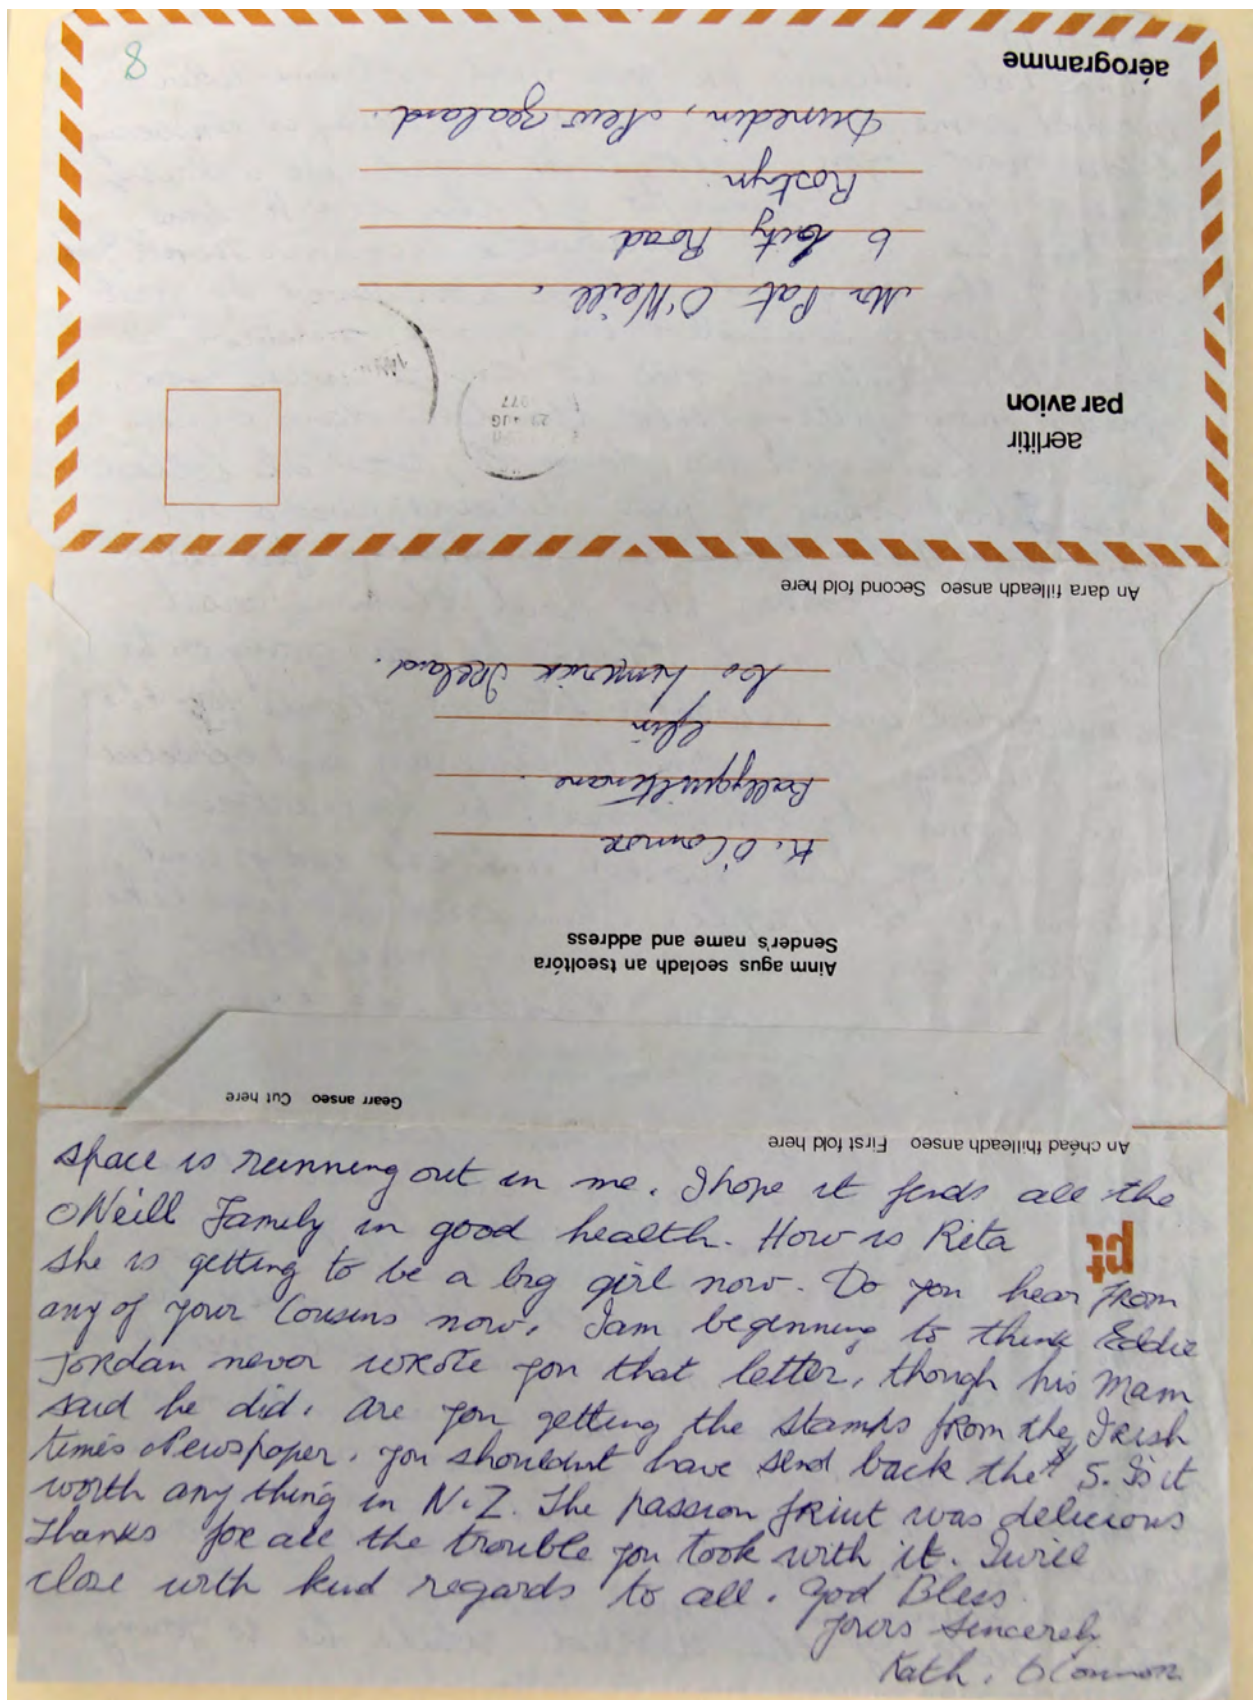 8
aérogramme
Mr Pat O'Neill,
6 City Road
Roslyn
Dunedin, New Zealand.
aerlitir
par avion
AUG
1977
An dara filleadh anseo Second fold here
K. O'Connor
Ballyguiltenane
Glin
Co Limerick Ireland.
Ainm agus seoladh an tseoltóra
Sender's name and address
Gearr anseo Cut here
An chéad fhilleadh anseo First fold here
space is running out in me. I hope it finds all the
O'Neill Family in good health. How is Rita
she is getting to be a big girl now. Do you hear from
pt
any of your Cousins now, I am beginning to think Eddie
Jordan never wrote you that letter, though his Mam
said he did. Are you getting the stamps from the Irish
times Newspaper. You shouldnt have send back the $5. Is it
worth any thing in N.Z. The passion fruit was delicious
Thanks for all the trouble you took with it. I will
close with kind regards to all. God Bless
Yours Sincerely
Kath. O'Connor